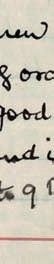 new
g ord
good
nd i
to 9 D